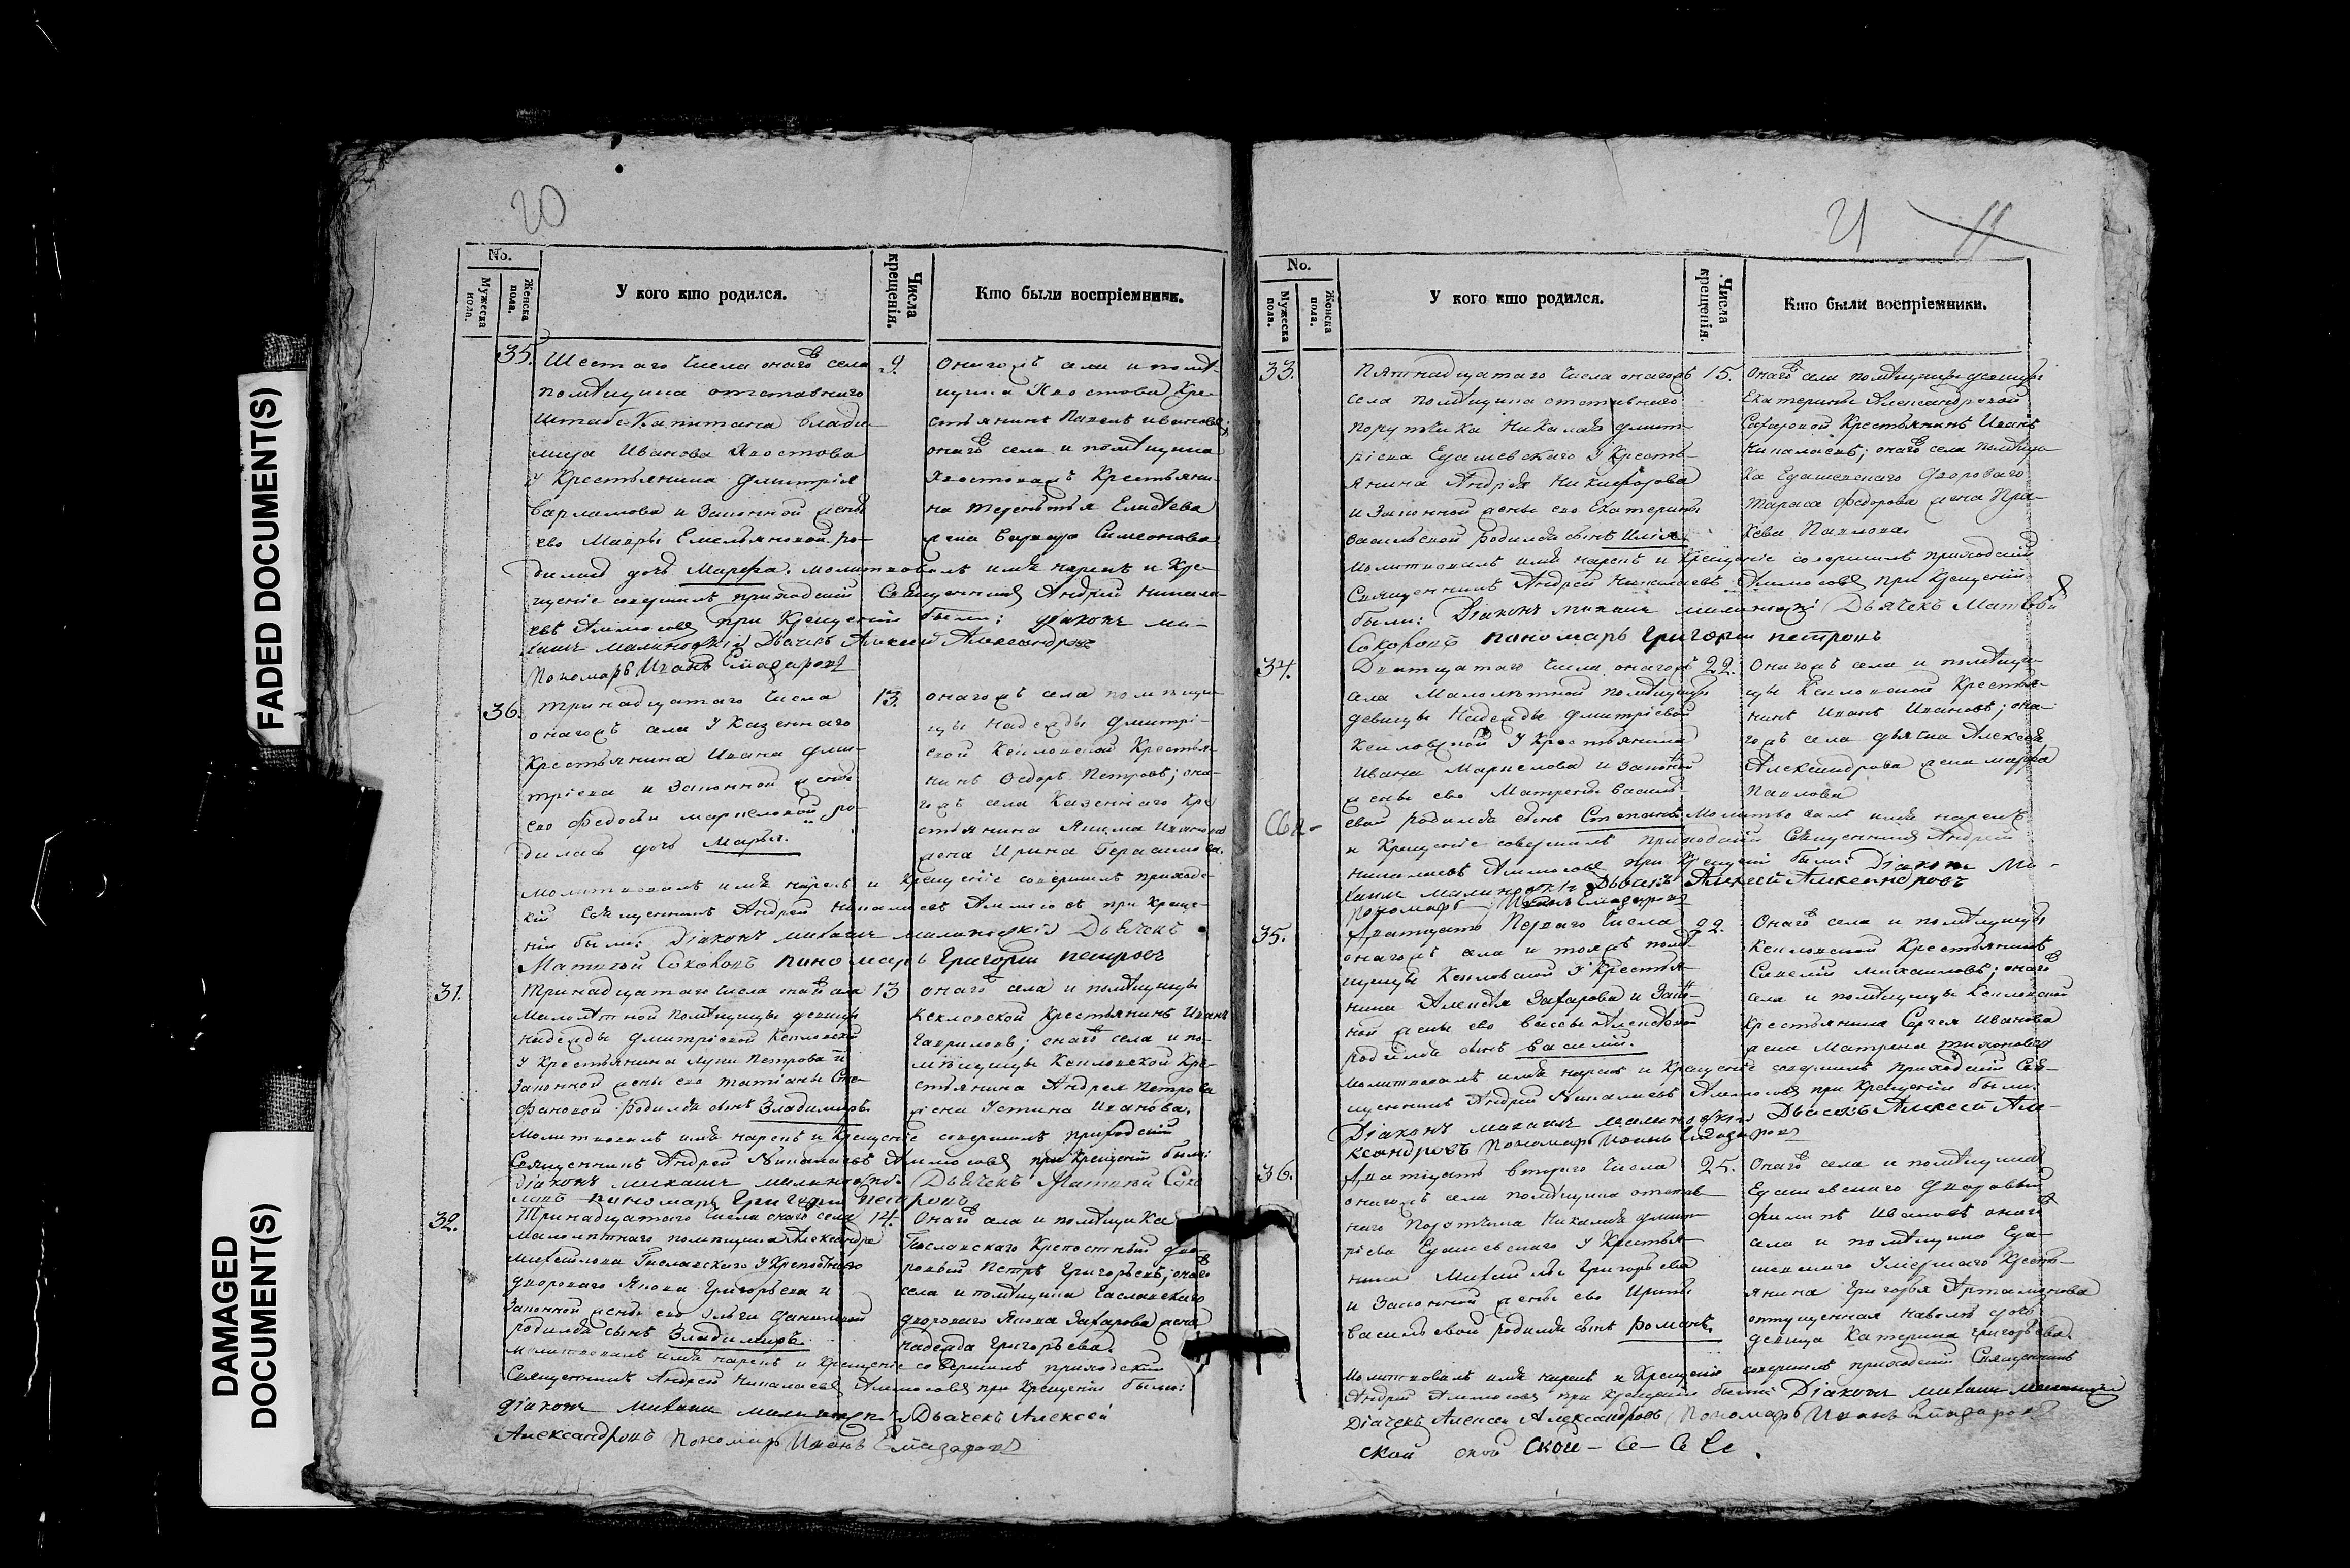 FADED DOCUMENT(S)
DAMAGED
DOCUMENT(S)
20
No.
Мужеска пола.
Женска пола.
У кого кто родился.
Числа крещенія.
Кто были воспріемники.
35.
Шестаго числа онагожъ села
помѣщика отставнаго
Штабс-Капитана Влади-
мира Иванова Хвостова
у Крестьянина Дмитрія
Варламова и Законной жены
ево Мавры Емельяновой ро-
дилась дочь Марфа. молитвовалъ имя нарекъ и Кре-
щеніе совершилъ приходскій Священникъ Андрей Никола-
евъ Аммосовъ при Крещеніи были: діаконъ ми-
хаилъ малиновскій Дьячекъ Алексей Александровъ
Пономарь Иванъ
9.
Онагожъ села и помѣ-
щика Хвостова Кре-
стьянинъ Павелъ Ивановъ;
онагожъ села и помѣщика
Хвостова Крестьяни-
на Терентья Елисѣева
жена Варвара Симеонова
36.
Тринадцатаго числа
онагожъ села у Казеннаго
Крестьянина Ивана Дми-
тріева и Законной жены
ево Федосьи маркеловой ро-
дилась дочь Марья.
молитвовалъ имя нарекъ и Крещеніе совершилъ приход-
скій Священникъ Андрей Николаевъ Аммосовъ при Креще-
ніи были: Діаконъ михаилъ малиновскій Дьячекъ
Матвей Соколовъ пономарь Григорій петровъ
13.
онагожъ села помѣщи-
цы Надежды Дмитрі-
евой Крестья-
нинъ Федоръ Петровъ; она-
гожъ села Казеннаго Кре
стьянина Якима Иванова
жена Ирина Герасимова.
31.
Тринадцатаго числа онагожъ села
Малолѣтной помѣщицы девицы
Надежды Дмитріевой
у Крестьянина Луки Петрова и
Законной жены ево Татіаны Сте-
фановой родился сынъ Владимиръ.
молитвовалъ имя нарекъ и Крещеніе совершилъ приходскій
Священникъ Андрей Николаевъ Аммосовъ при Крещеніи были:
Діаконъ михаилъ малиновскій Дьячекъ Матвей Соко
ловъ пономарь Григорій петровъ
13
онагожъ села и помѣщицы
Крестьянинъ Иванъ
Гавриловъ; онагожъ села и по-
мѣщицы Кре-
стьянина Андрея Петрова
жена Устина Иванова.
32.
Тринадцатаго числа онагожъ села
малолѣтнаго помѣщика Александра
Михайлова у Крепостнаго
двороваго Якова Григорьева и
Законной жены ево Ольги Даниловой
родился сынъ Владимиръ.
молитвовалъ имя нарекъ и Крещеніе совершилъ приходскій
Священникъ Андрей Николаевъ Аммосовъ при Крещеніи были:
діаконъ михаилъ малиновскій Дьячекъ Алексей
Александровъ Пономарь Иванъ
14.
Онагожъ села и помѣщика
Крепостный дво-
ровый Петръ Григорьевъ; онагожъ
села и помѣщика
двороваго Якова Захарова жена
Надежда Григорьева.
21
11
No.
Мужеска пола.
Женска пола.
У кого кто родился.
Числа крещенія.
Кто были воспріемники.
33.
Пятнадцатаго числа онагожъ
села помѣщика отставнаго
порутчика Николая Дмит-
ріева Едашевскаго у Кресть-
янина Андрея Никифорова
и Законной жены ево Екатерины
Васильевой родился сынъ Илія.
молитвовалъ имя нарекъ и Крещеніе совершилъ приходскій
Священникъ Андрей Николаевъ Аммосовъ при Крещеніи
были: Діаконъ михаилъ малиновскій Дьячекъ Матвей
Соколовъ пономарь Григорій петровъ
15.
Онагожъ села помѣщицы девицы
Екатерины Александровой
Крестьянинъ Иванъ
Николаевъ; онагожъ села помѣщи-
ка Едашевскаго двороваго
Тараса Федорова жена Пра-
Павлова.
34.
Дватцатаго числа онагожъ
села Малолѣтной помѣщицы
девицы Надежды Дмитріевой
у Крестьянина
Ивана Маркелова и Законной
жены ево Матрены Василь-
евой родился сынъ Степанъ. Молитвовалъ имя нарекъ
и Крещеніе совершилъ приходскій Священникъ Андрей
Николаевъ Аммосовъ при Крещеніи были: Діаконъ ми-
хаилъ малиновскій Дьячекъ Алексей Александровъ
Пономарь Иванъ
22.
Онагожъ села и помѣщи-
цы Крестья-
нинъ Иванъ Ивановъ; она-
гожъ села дьячка Алексея
Александрова жена марфа
Павлова
35.
Дватцать Перваго числа
онагожъ села и тояжъ помѣ-
щицы у Крестья-
нина Алексѣя Захарова и Закон-
ной жены ево Вассы Алексѣевой
родился сынъ Василій.
молитвовалъ имя нарекъ и Крещеніе совершилъ приходскій Свя-
щенникъ Андрей Николаевъ Аммосовъ при Крещеніи были:
Діаконъ михаилъ малиновскій Дьячекъ Алексей Але-
ксандровъ Пономарь Иванъ
22.
Онагожъ села и помѣщицы
Крестьянинъ
Савелій Михайловъ; онагожъ
села и помѣщицы
Крестьянина Сергея Иванова
жена Матрена Тихонова
36.
Дватцать втораго числа
онагожъ села помѣщика отстав-
наго Порутчика Николая Дмит-
ріева Едашевскаго у Крестья-
нина Михайлы Григорьева
и Законной жены ево Ирины
Васильевой родился сынъ Романъ.
молитвовалъ имя нарекъ и Крещеніе совершилъ приходскій Священникъ
Андрей Аммосовъ при Крещеніи были: Діаконъ михаилъ малиновскій
Діачекъ Алексей Александровъ Пономарь Иванъ
25.
Онагожъ села и помѣщика
Едашевскаго дворовый
Филипъ Ивановъ онагожъ
села и помѣщика Еда-
шевскаго умершаго Кресть-
янина Григорья Артамонова
отпущенная наволю дочь
девица Катерина Григорьева.
ской ской Ской – Се – Се Се.